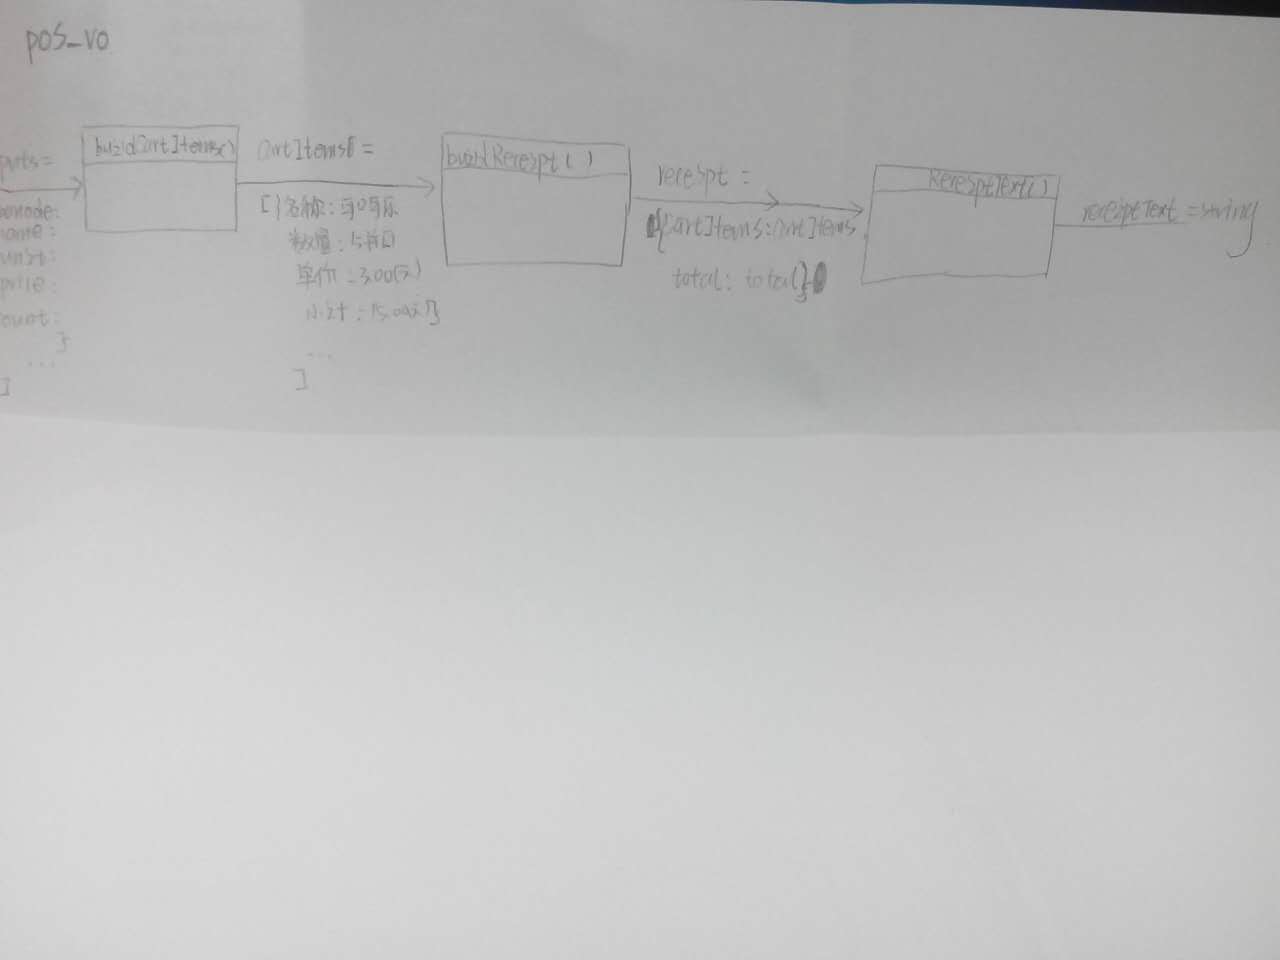 pos_v0
puts=
name:
unit:
price:
ount:
}
...
]
buildCartItems()
cartItems[]=
[{名称:可口可乐
数量:5瓶
单价:3.00(元)
小计:15.00元}
...
]
buildReceipt()
receipt:
{cartItems:cartItems
total: total}
ReceiptText()
receiptText=string